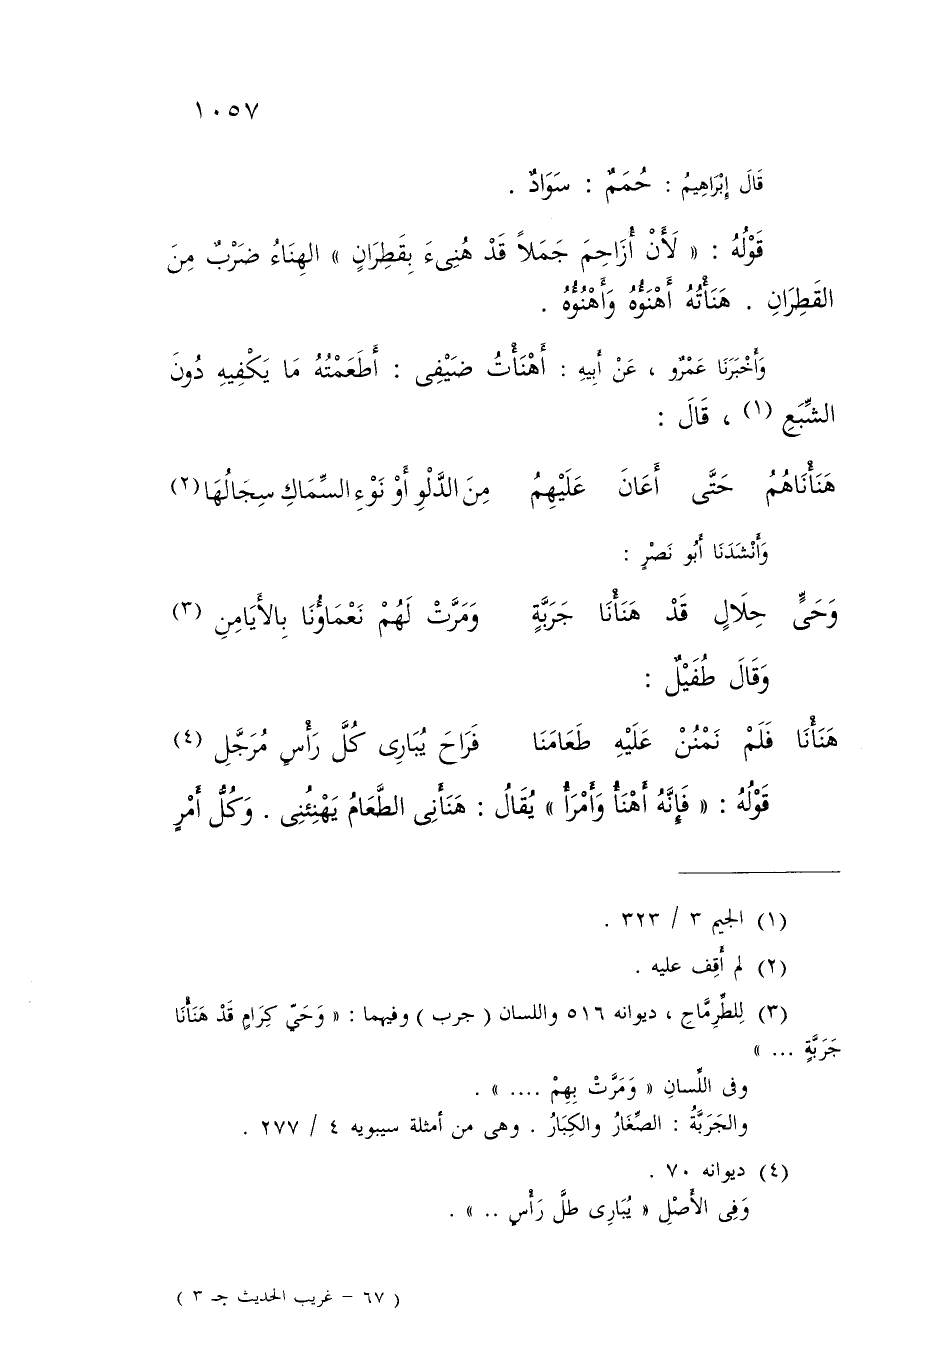 ١٠٥٧
قَالَ إِبْرَاهِيمُ : حُمَمٌ : سَوَادٌ .
قَوْلُهُ : « لَأَنْ أُزَاحِمَ جَمَلاً قَدْ هُنِىءَ بِقَطِرَانٍ » الهِنَاءُ ضَرْبٌ مِنَ
القَطِرَانِ . هَنَأْتُهُ أَهْنَؤُهُ وَأَهْنُؤُهُ .
وَأَخْبَرَنَا عَمْرٌو ، عَنْ أَبِيهِ : أَهْنَأْتُ ضَيْفِى : أَطْعَمْتُهُ مَا يَكْفِيهِ دُونَ
الشِّبَعِ (١) ، قَالَ :
هَنَأْنَاهُمُ حَتَّى أَعَانَ عَلَيْهِمُ مِنَ الدَّلْوِ أَوْ نَوْءِ السِّمَاكِ سِجَالُهَا (٢)
وَأَنْشَدَنَا أَبُو نَصْرٍ :
وَحَىٍّ حِلَالٍ قَدْ هَنَأْنَا جَرَبَّةٍ وَمَرَّتْ لَهُمْ نَعْمَاؤُنَا بِالأَيَامِنِ (٣)
وَقَالَ طُفَيْلٌ :
هَنَأْنَا فَلَمْ نَمْنُنْ عَلَيْهِ طَعَامَنَا فَرَاحَ يُبَارِى كُلَّ رَأْسٍ مُرَجَّلِ (٤)
قَوْلُهُ : « فَإِنَّهُ أَهْنَأُ وَأَمْرَأُ » يُقَالُ : هَنَأَنِى الطَّعَامُ يَهْنِئُنِى . وَكُلُّ أَمْرٍ
(١) الجيم ٣ / ٣٢٣ .
(٢) لم أَقِف عليه .
(٣) لِلطِّرِمَّاحِ ، ديوانه ٥١٦ واللسان ( جرب ) وفيهما : « وَحَيّ كِرَامٍ قَدْ هَنَأْنَا
جَرَبَّةٍ ... »
وفى اللِّسانِ « وَمَرَّتْ بِهِمْ .... » .
والجَرَبَّةُ : الصِّغَارُ والكِبَارُ . وهى من أمثلة سيبويه ٤ / ٢٧٧ .
(٤) ديوانه ٧٠ .
وَفِى الأَصْلِ « يُبَارِى ظلَّ رَأْسٍ .. » .
( ٦٧ – غريب الحديث جـ ٣ )